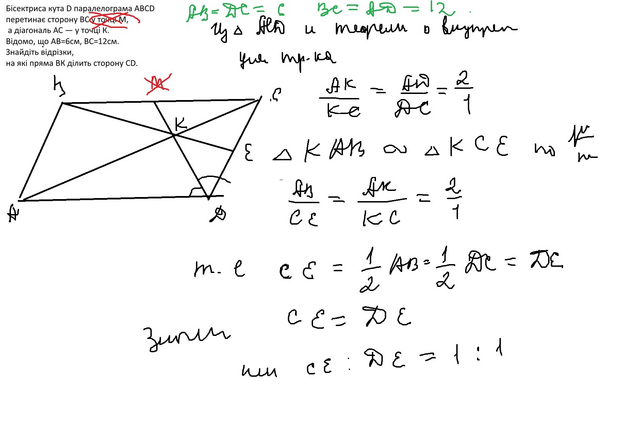 Бісектриса кута D паралелограма ABCD
перетинає сторону ВС у точці М,
а діагональ АС — у точці К.
Відомо, що АВ=6см, ВС=12см.
Знайдіть відрізки,
на які пряма ВК ділить сторону CD.
AB = DC = 6 BC = AD = 12
Из △ ACD и теоремы о внутрен
угле тр-ка
AK/KC = AD/DC = 2/1
△ KAB ∾ △ KCE по
AB/CE = AK/KC = 2/1
т. е CE = 1/2 AB = 1/2 DC = DE
CE = DE
или CE : DE = 1 : 1
B
M
C
K
E
A
D